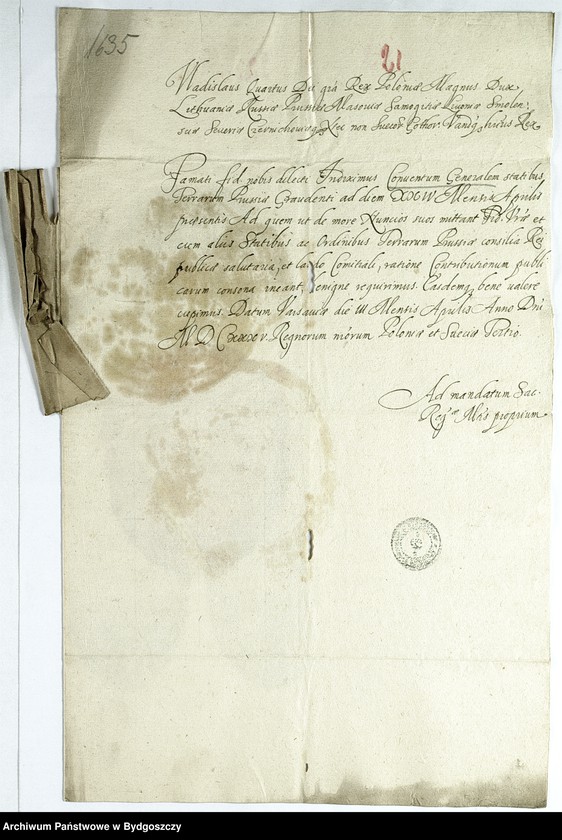 1635
21
Vladislaus Quartus Dei grã Rex Poloniæ Magnus Dux
Lithuaniæ Russiæ Prussiæ Masoviæ Samogitiæ Livoniæ Smolen:
sciæ Severiæ Czernichoviæq; Nec non Suecor Gothor Vandq; hæritus Rex
Famati fid. nobis dilecti Indiximus Conventum Generalem statibus
Terrarum Prussiæ Graudenti ad diem Mensis Aprilis
præsentis Ad quem ut de more Nuncios suos mittant Fid. Vræ et
cum aliis Statibus ac Ordinibus Terrarum Prussiæ consilia Rei
publicæ salutaria, et laudo Comitiali, ratione Contributionum publi
carum consona ineant, benigne requirimus. Easdemq; bene valere
cupimus. Datum Varsaviæ die III Mensis Aprilis Anno Dni
M. D CXXXV. Regnorum nrorum Poloniæ et Sueciæ Tertio.
Ad mandatum Sac.
Regæ Mtis proprium
Archiwum Państwowe w Bydgoszczy